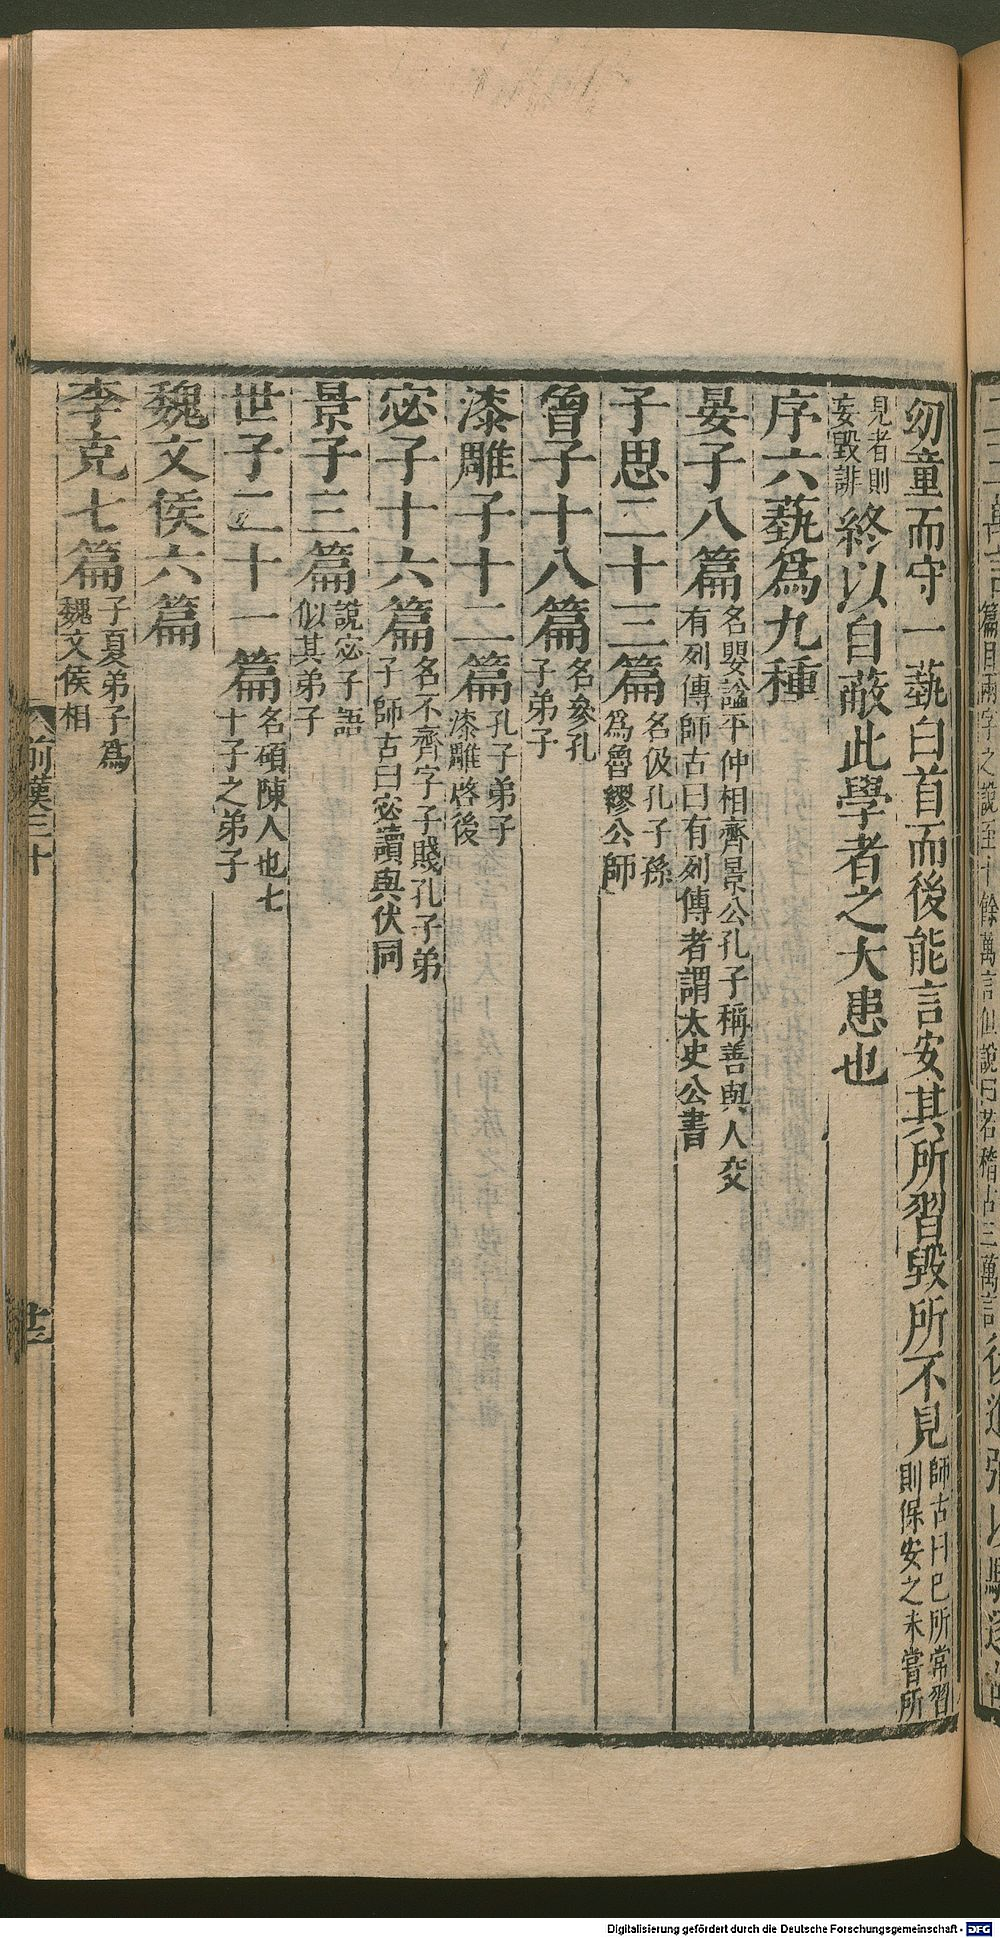 幼童而守一蓺白首而後能言安其所習毀所不見師古曰己所常習則保安之未嘗所
見者則妄毀誹終以自蔽此學者之大患也
序六蓺爲九種
晏子八篇名嬰諡平仲相齊景公孔子稱善與人交有列傳師古曰有列傳者謂太史公書
子思二十三篇名伋孔子孫爲魯繆公師
曾子十八篇名參孔子弟子
漆雕子十二篇孔子弟子漆雕啓後
宓子十六篇名不齊字子賤孔子弟子師古曰宓讀與伏同
景子三篇說宓子語似其弟子
世子二十一篇名碩陳人也七十子之弟子
魏文侯六篇
李克七篇子夏弟子爲魏文侯相
前漢三十
廿三
Digitalisierung gefördert durch die Deutsche Forschungsgemeinschaft - DFG